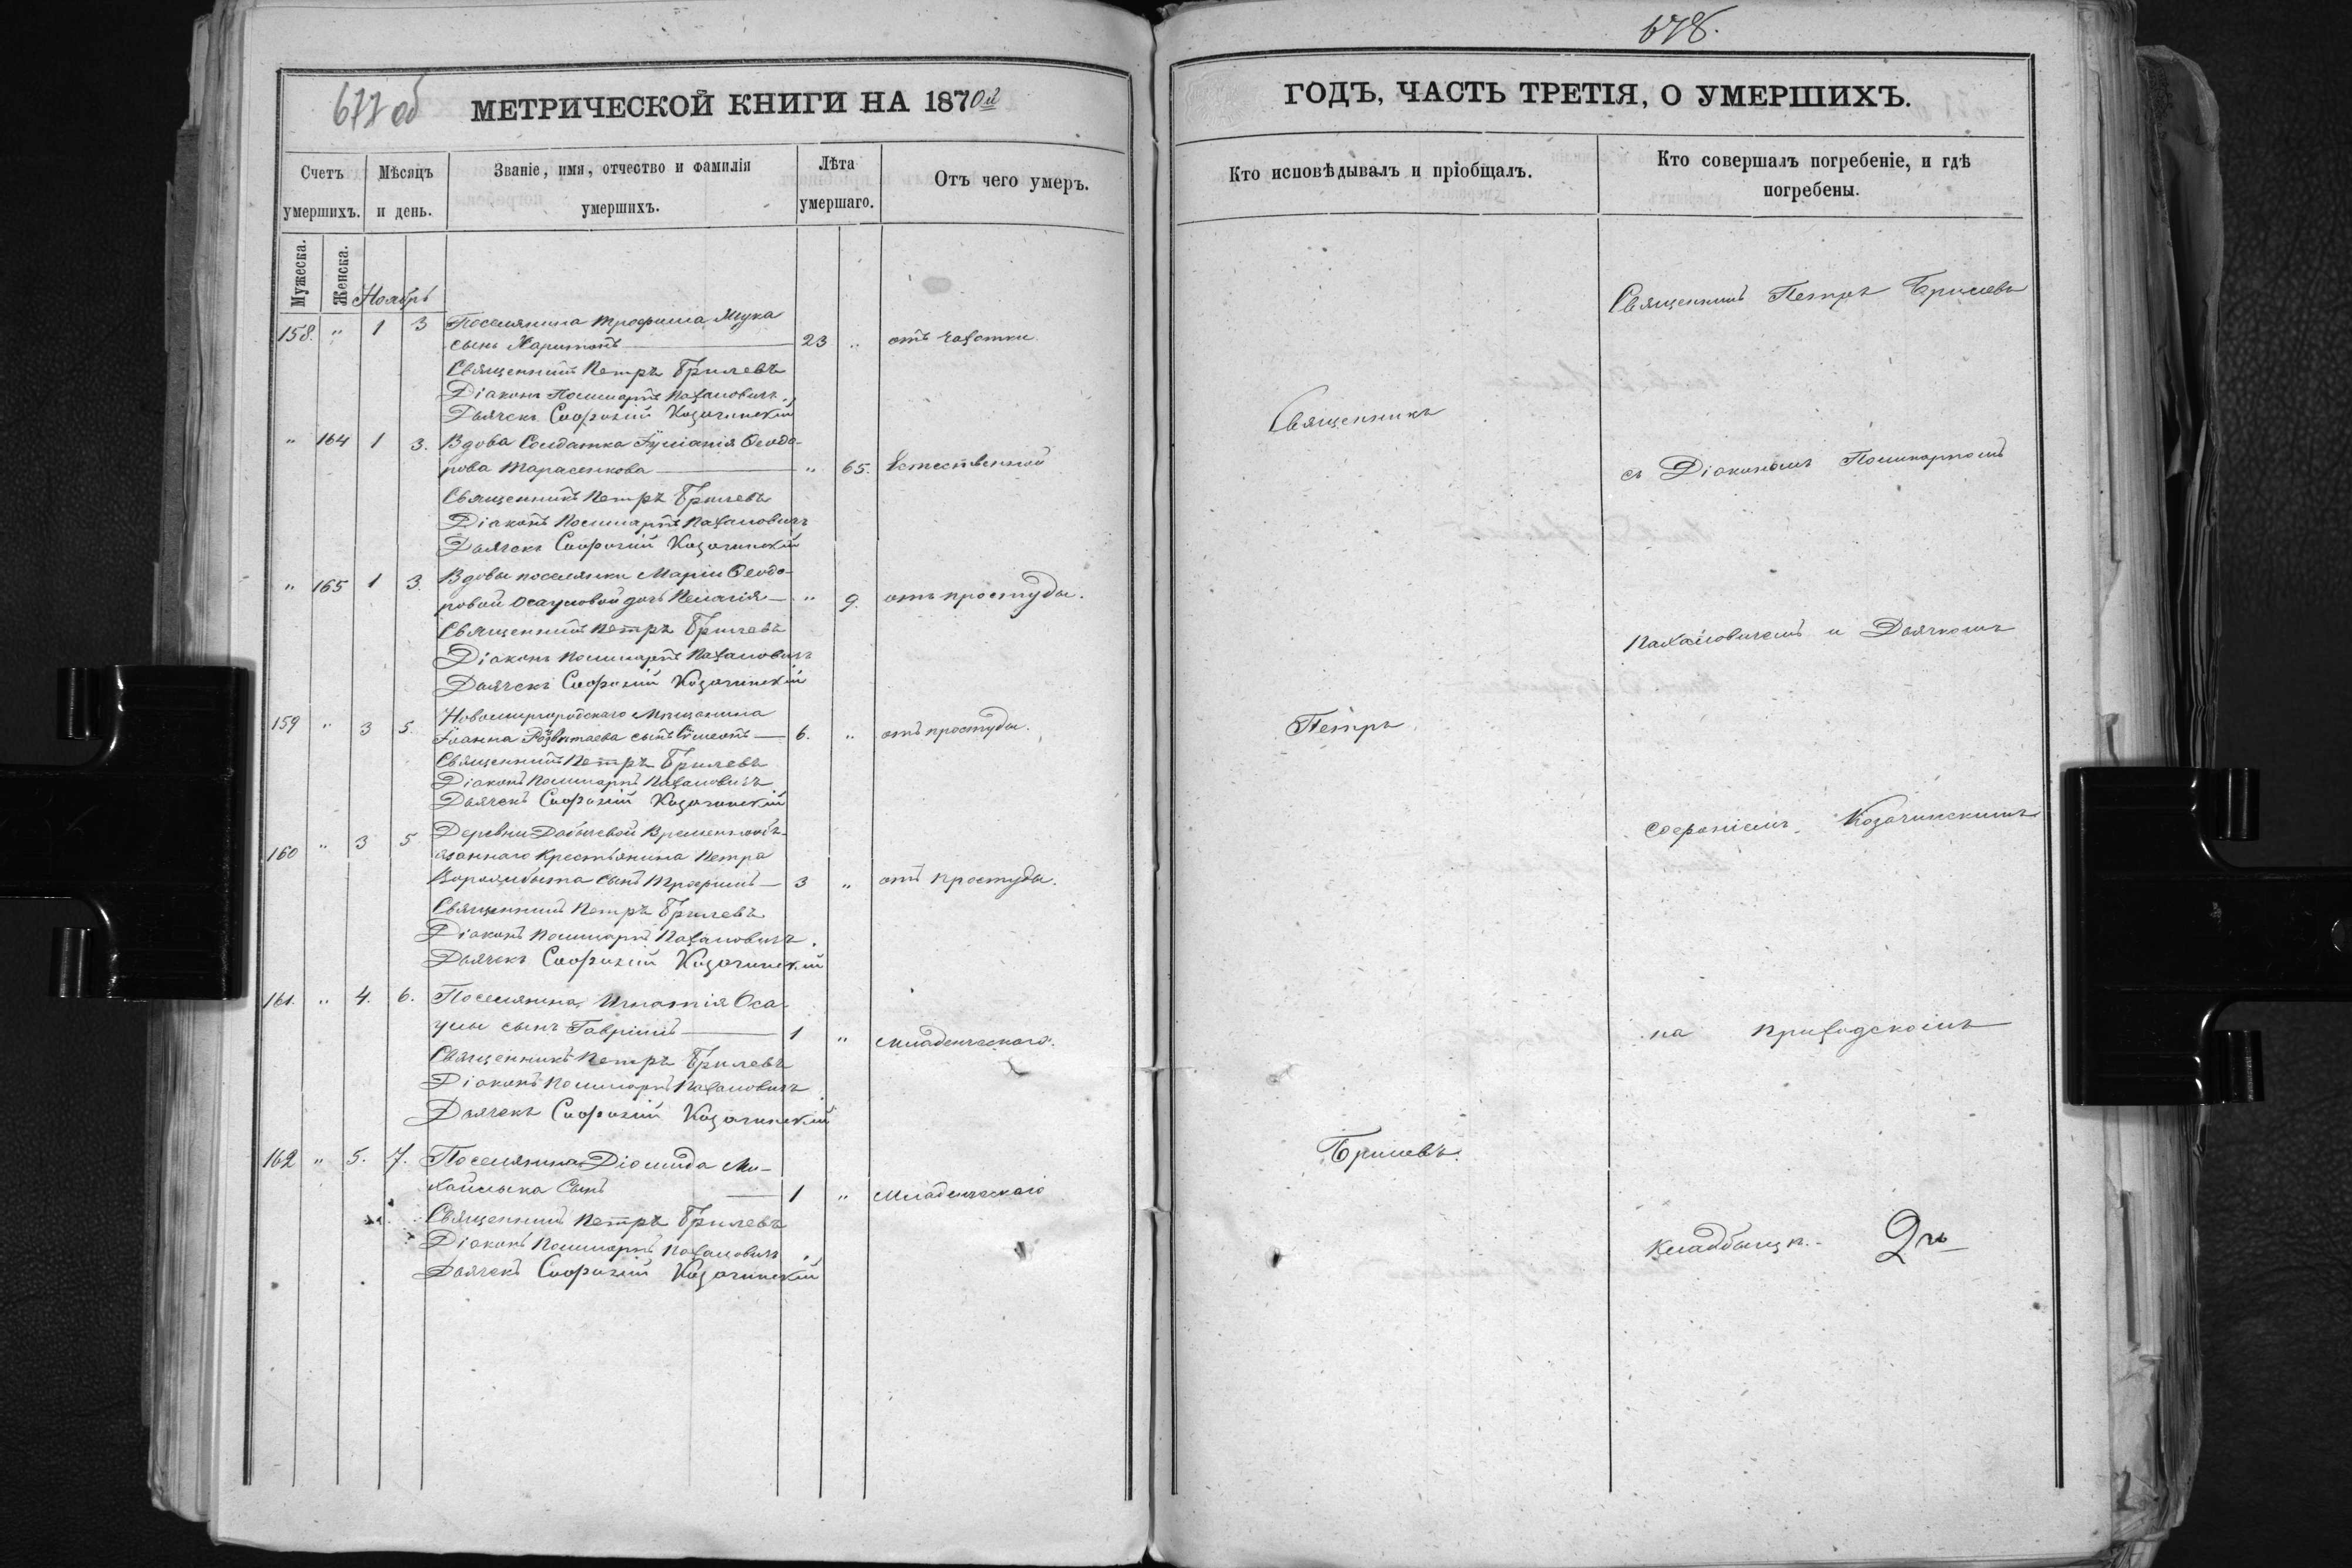 677 об
МЕТРИЧЕСКОЙ КНИГИ НА 1870й
Счетъ умершихъ.
Мѣсяцъ и день.
Званіе, имя, отчество и фамилія умершихъ.
Лѣта умершаго.
Отъ чего умеръ.
Мужеска.
Женска.
Ноябрь
158. " 1 3 Поселянина Трофима
сынъ Харитонъ 23 " отъ чахотки
Священникъ Петръ Брилевъ
Діаконъ Поликарпъ Пахаловичъ
Дьячекъ Софроній Козачинскій
" 164 1 3. Вдова Солдатка Іуліанія Ѳеодо-
рова Тарасенкова " 65. Естественной
Священникъ Петръ Брилевъ
Діаконъ Поликарпъ Пахаловичъ
Дьячекъ Софроній Козачинскій
" 165 1 3. Вдовы поселянки Маріи Ѳеодо-
ровой Осауловой дочь Пелагія " 9. отъ простуды.
Священникъ Петръ Брилевъ
Діаконъ Поликарпъ Пахаловичъ
Дьячекъ Софроній Козачинскій
159 " 3 5. Новомиргородскаго Мѣщанина
Іоанна сынъ Симеонъ 6. " отъ простуды.
Священникъ Петръ Брилевъ
Діаконъ Поликарпъ Пахаловичъ
Дьячекъ Софроній Козачинскій
160 " 3 5 Деревни Временнообя-
заннаго Крестьянина Петра
сынъ Трофимъ 3 " отъ простуды.
Священникъ Петръ Брилевъ
Діаконъ Поликарпъ Пахаловичъ
Дьячекъ Софроній Козачинскій
161. " 4. 6. Поселянина Игнатія Оса-
улы сынъ Гавріилъ 1 " младенческаго.
Священникъ Петръ Брилевъ
Діаконъ Поликарпъ Пахаловичъ
Дьячекъ Софроній Козачинскій
162 " 5. 7. Поселянина Діомида Ми-
хайлыка Сынъ 1 " Младенческаго
Священникъ Петръ Брилевъ
Діаконъ Поликарпъ Пахаловичъ
Дьячекъ Софроній Козачинскій
678.
ГОДЪ, ЧАСТЬ ТРЕТІЯ, О УМЕРШИХЪ.
Кто исповѣдывалъ и пріобщалъ.
Кто совершалъ погребеніе, и гдѣ
погребены.
Священникъ Петръ Брилевъ
Священникъ
съ Діакономъ Поликарпомъ
Пахаловичемъ и Дьячкомъ
Петръ
Софроніемъ Козачинскимъ
на приходскомъ
Брилевъ.
кладбищѣ.